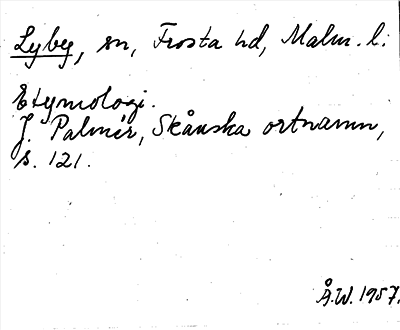 Lyby, sn, Frosta hd, Malm. l.
Etymologi.
J. Palmér, Skånska ortnamn,
s. 121.
Å.W. 1957.